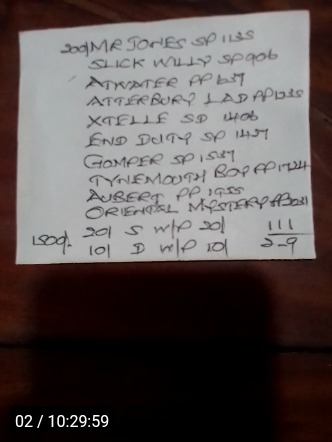 200/ MR JONES SP 1135
SLICK WILLY SP 906
ATWATER PP 637
ATTERBURY LAD PP 1235
XTELLE SD 1406
END DUTY SP 1437
GOMPER SP 1537
TYNEMOUTH BOY PP 1724
AUBERT PP 1955
ORIENTAL MYSTERY PP 2031
1500/. 20/ S W/P 20/ 111
10/ D W/P 10/ 2-9
02 / 10:29:59